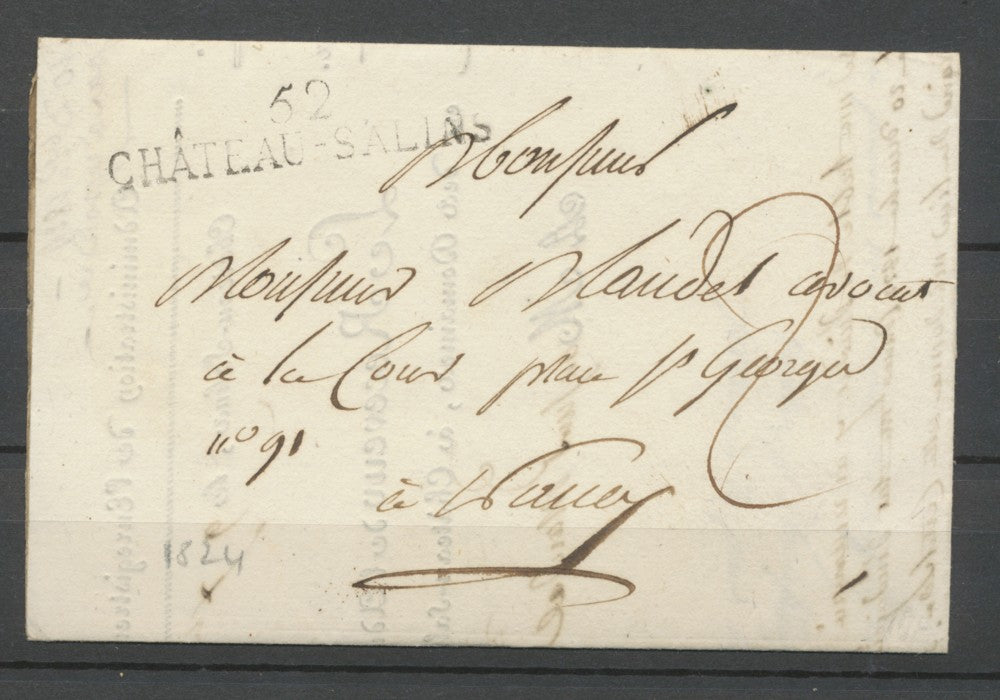 52
CHÂTEAU-SALINS
Monsieur
Monsieur Mandel avocat
à la Cour place St Georges
no 91
à Nancy
1824